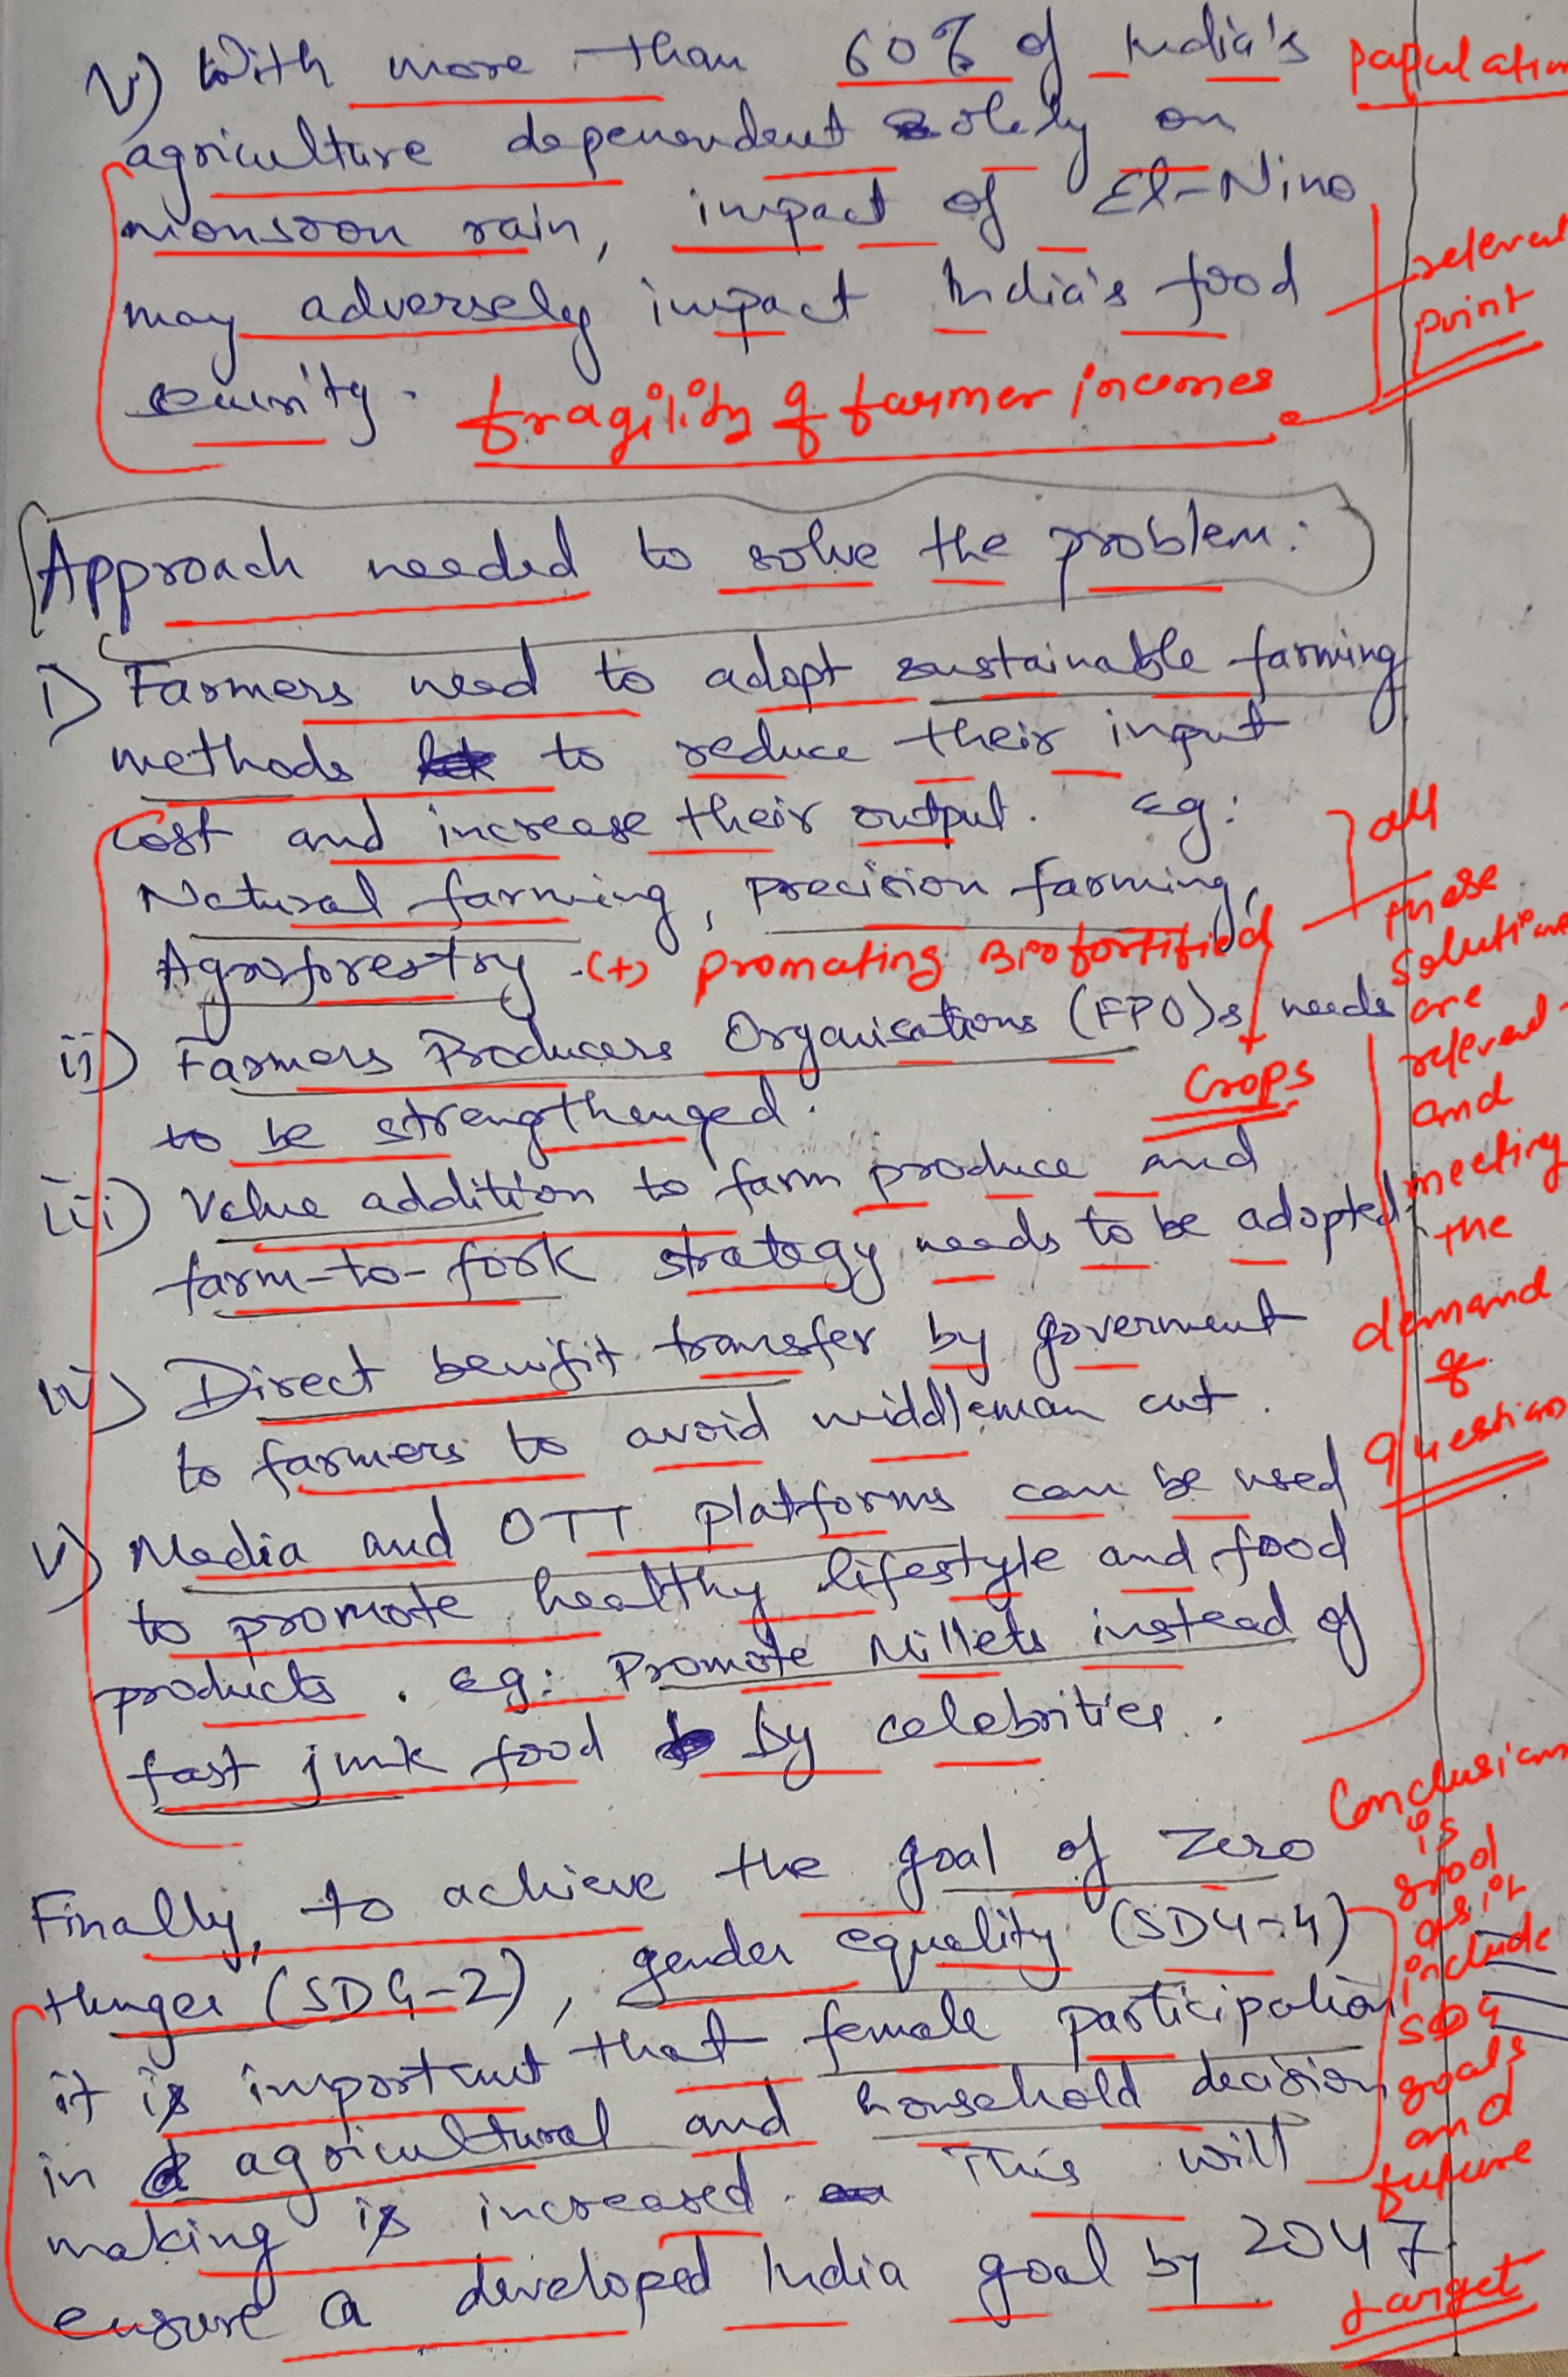 v) With more than 60% of India's
population
agriculture dependent solely on
monsoon rain, impact of El-Nino
may adversely impact India's food
security.
relevant
point
fragility of farmer incomes
Approach needed to solve the problem:
i) Farmers need to adopt sustainable farming
methods to reduce their input
cost and increase their output. Eg:
Natural farming, precision farming,
Agroforestry. (+) promoting Biofortified
crops
ii) Farmers Producers Organisations (FPO)s needs
to be strengthenged.
iii) Value addition to farm produce and
farm-to-fork strategy needs to be adopted.
iv) Direct benifit transfer by goverment
to farmers to avoid middleman cut.
v) Media and OTT platforms can be used
to promote healthy lifestyle and food
products. Eg: Promote Millets instead of
fast junk food by celebrities.
all
these
solutions
are
relevant
and
meeting
the
demand
of
question
Finally, to achieve the goal of Zero
Hunger (SDG-2), gender equality (SDG-4)
it is important that female participation
in agricultural and household decision
making is increased. This will
ensure a developed India goal by 2047.
Conclusion
is
good
as it
include
SDG
goals
and
future
target